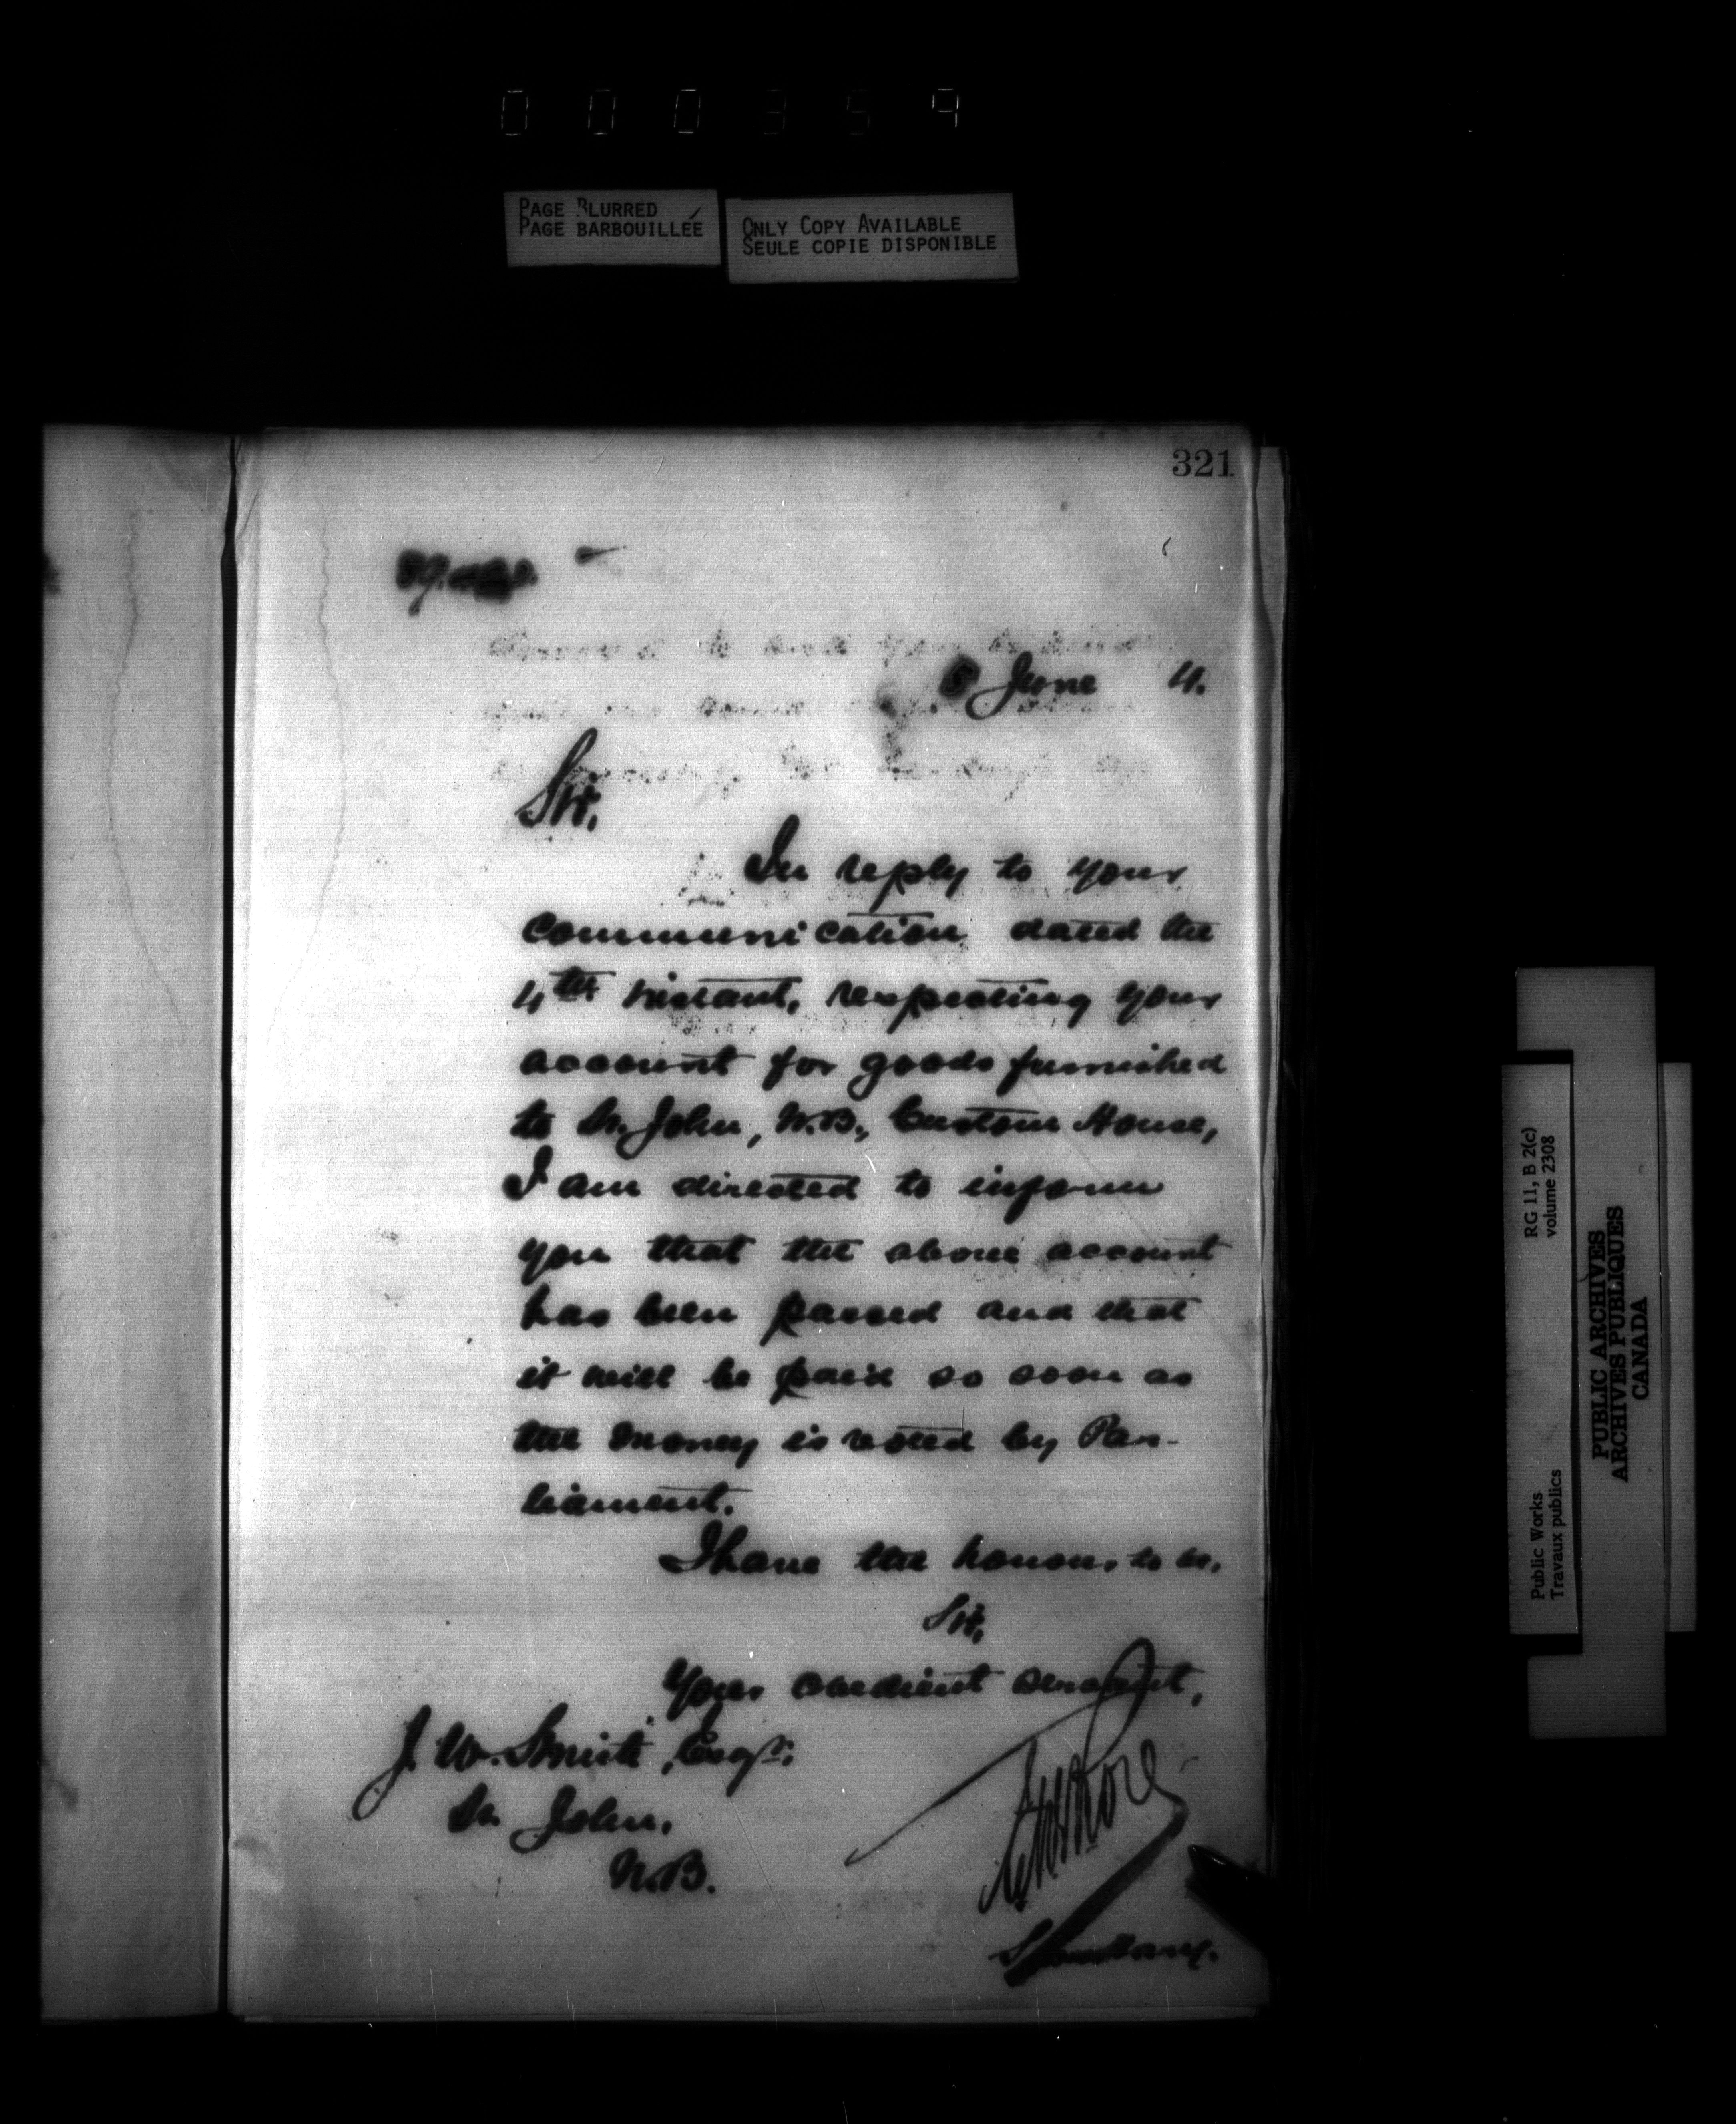 000359
PAGE BLURRED
PAGE BARBOUILLÉE
ONLY COPY AVAILABLE
SEULE COPIE DISPONIBLE
321
June 4.
Sir,
In reply to your
communication dated the
4th instant, respecting your
account for goods furnished
to St. John, N.B., Custom House,
I am directed to inform
you that the above account
has been passed and that
it will be paid so soon as
the money is voted by Par-
liament.
I have the honour to be,
Sir,
Your obedient servant,
J. W. Smith, Esqr.
St. John,
N.B.
Secretary.
RG 11, B 2(c)
volume 2308
Public Works
Travaux publics
PUBLIC ARCHIVES
ARCHIVES PUBLIQUES
CANADA